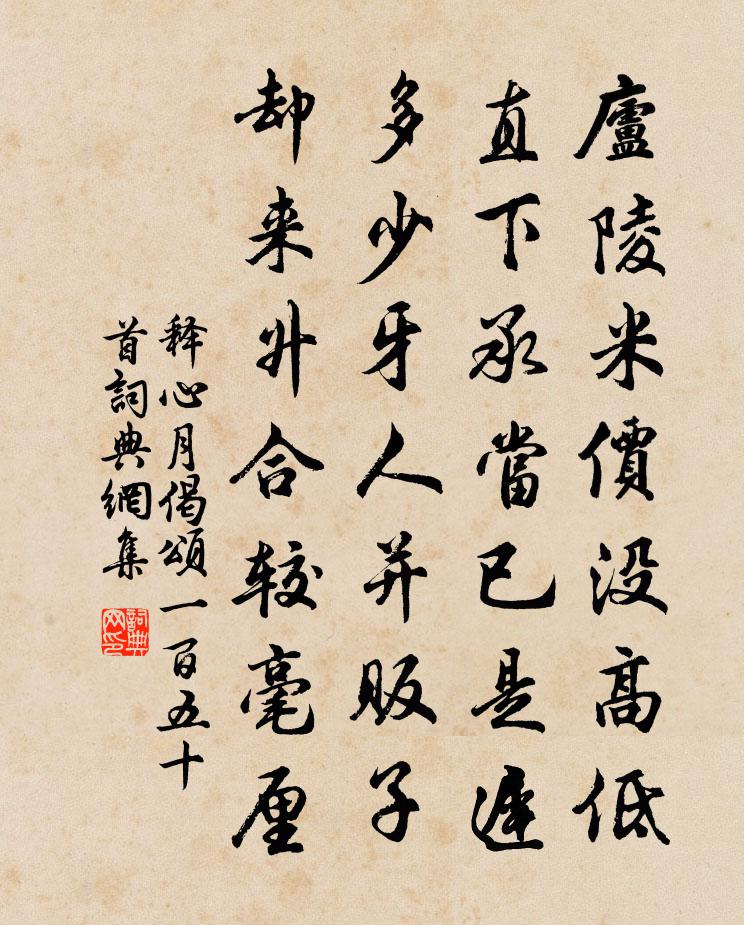 廬陵米價没高低
直下承當已是遲
多少牙人并販子
却来升合較毫厘
释心月偈頌一百五十
首詞典網集
詞典網印